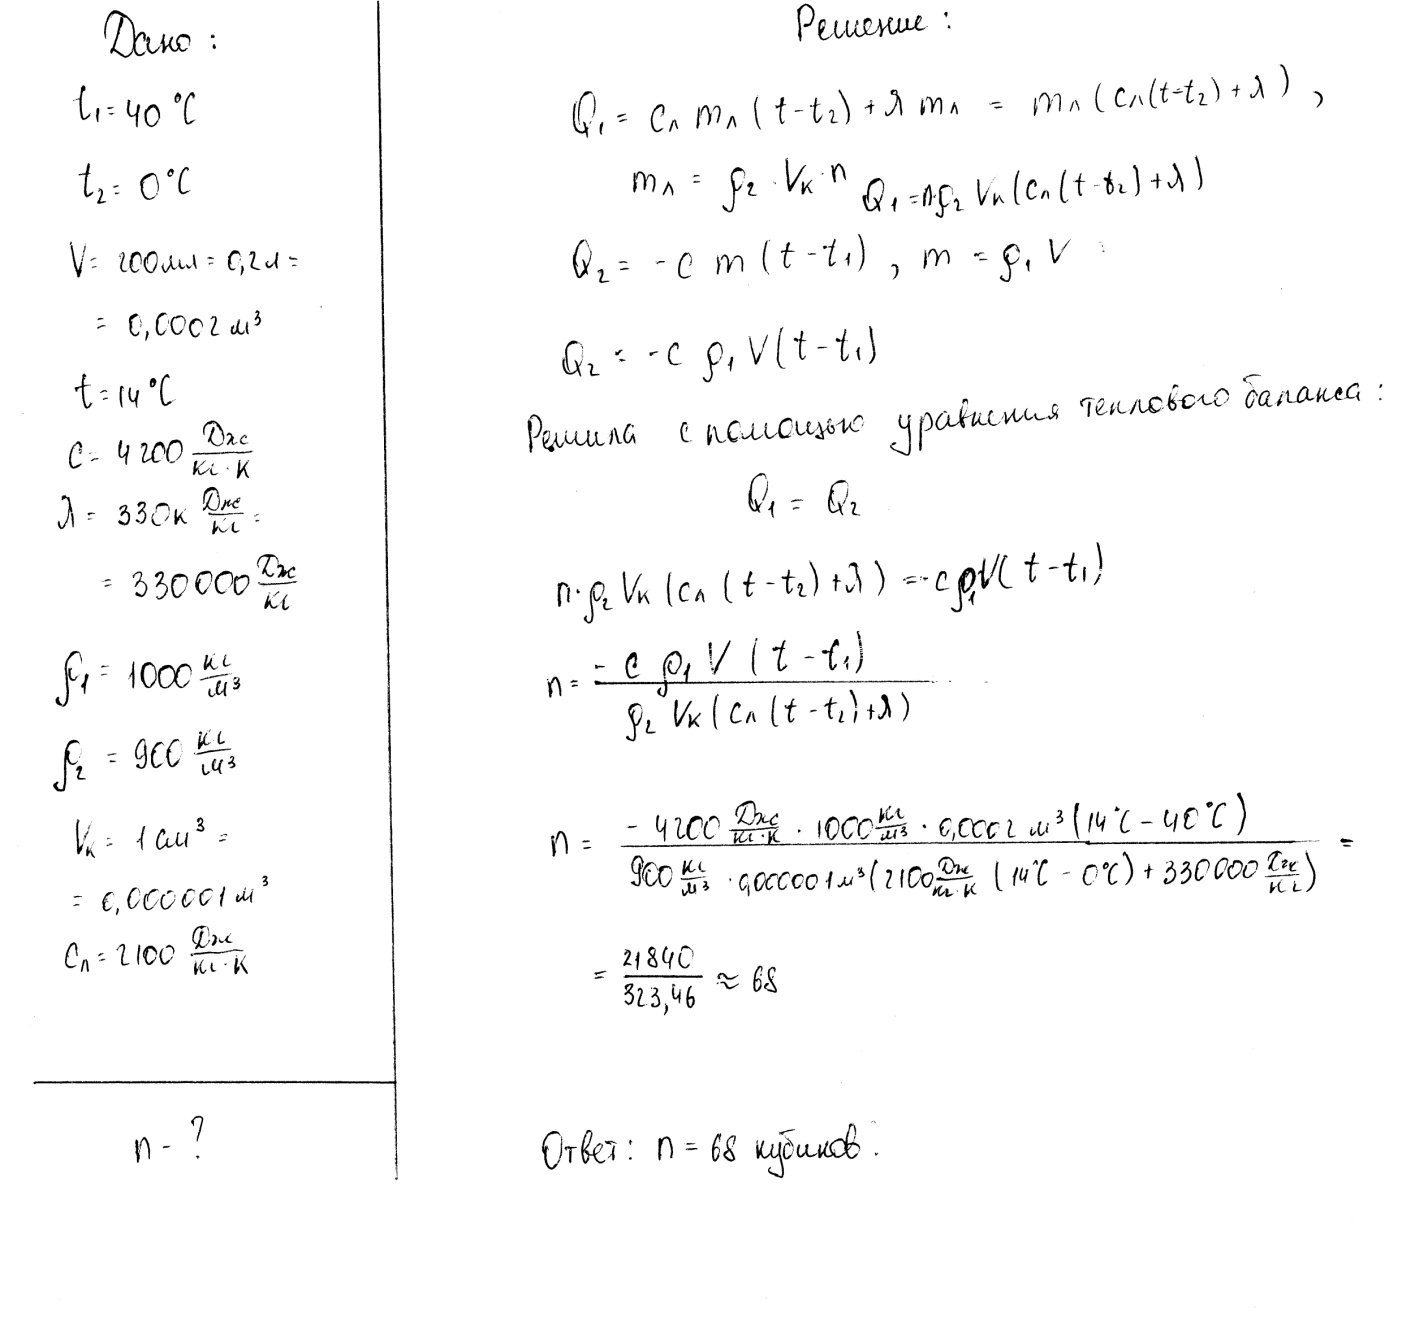 Дано:
t₁ = 40 °C
t₂ = 0 °C
V = 200 мл = 0,2 л =
= 0,0002 м³
t = 14 °C
c = 4200 Дж/кг·К
λ = 330к Дж/кг =
= 330000 Дж/кг
ρ₁ = 1000 кг/м³
ρ₂ = 900 кг/м³
Vк = 1 см³ =
= 0,000001 м³
cл = 2100 Дж/кг·К
n - ?
Решение:
Q₁ = cл mл (t - t₂) + λ mл = mл (cл (t - t₂) + λ),
mл = ρ₂ · Vк · n Q₁ = n·ρ₂ Vк (cл (t - t₂) + λ)
Q₂ = - c m (t - t₁), m = ρ₁ V
Q₂ = - c ρ₁ V (t - t₁)
Решила с помощью уравнения теплового баланса:
Q₁ = Q₂
n·ρ₂ Vк (cл (t - t₂) + λ) = - c ρ₁ V (t - t₁)
n = - c ρ₁ V (t - t₁) / ρ₂ Vк (cл (t - t₂) + λ)
n = - 4200 Дж/кг·К · 1000 кг/м³ · 0,0002 м³ (14°C - 40°C) / 900 кг/м³ · 0,000001 м³ (2100 Дж/кг·К (14°C - 0°C) + 330000 Дж/кг) =
= 21840 / 323,46 ≈ 68
Ответ: n = 68 кубиков.